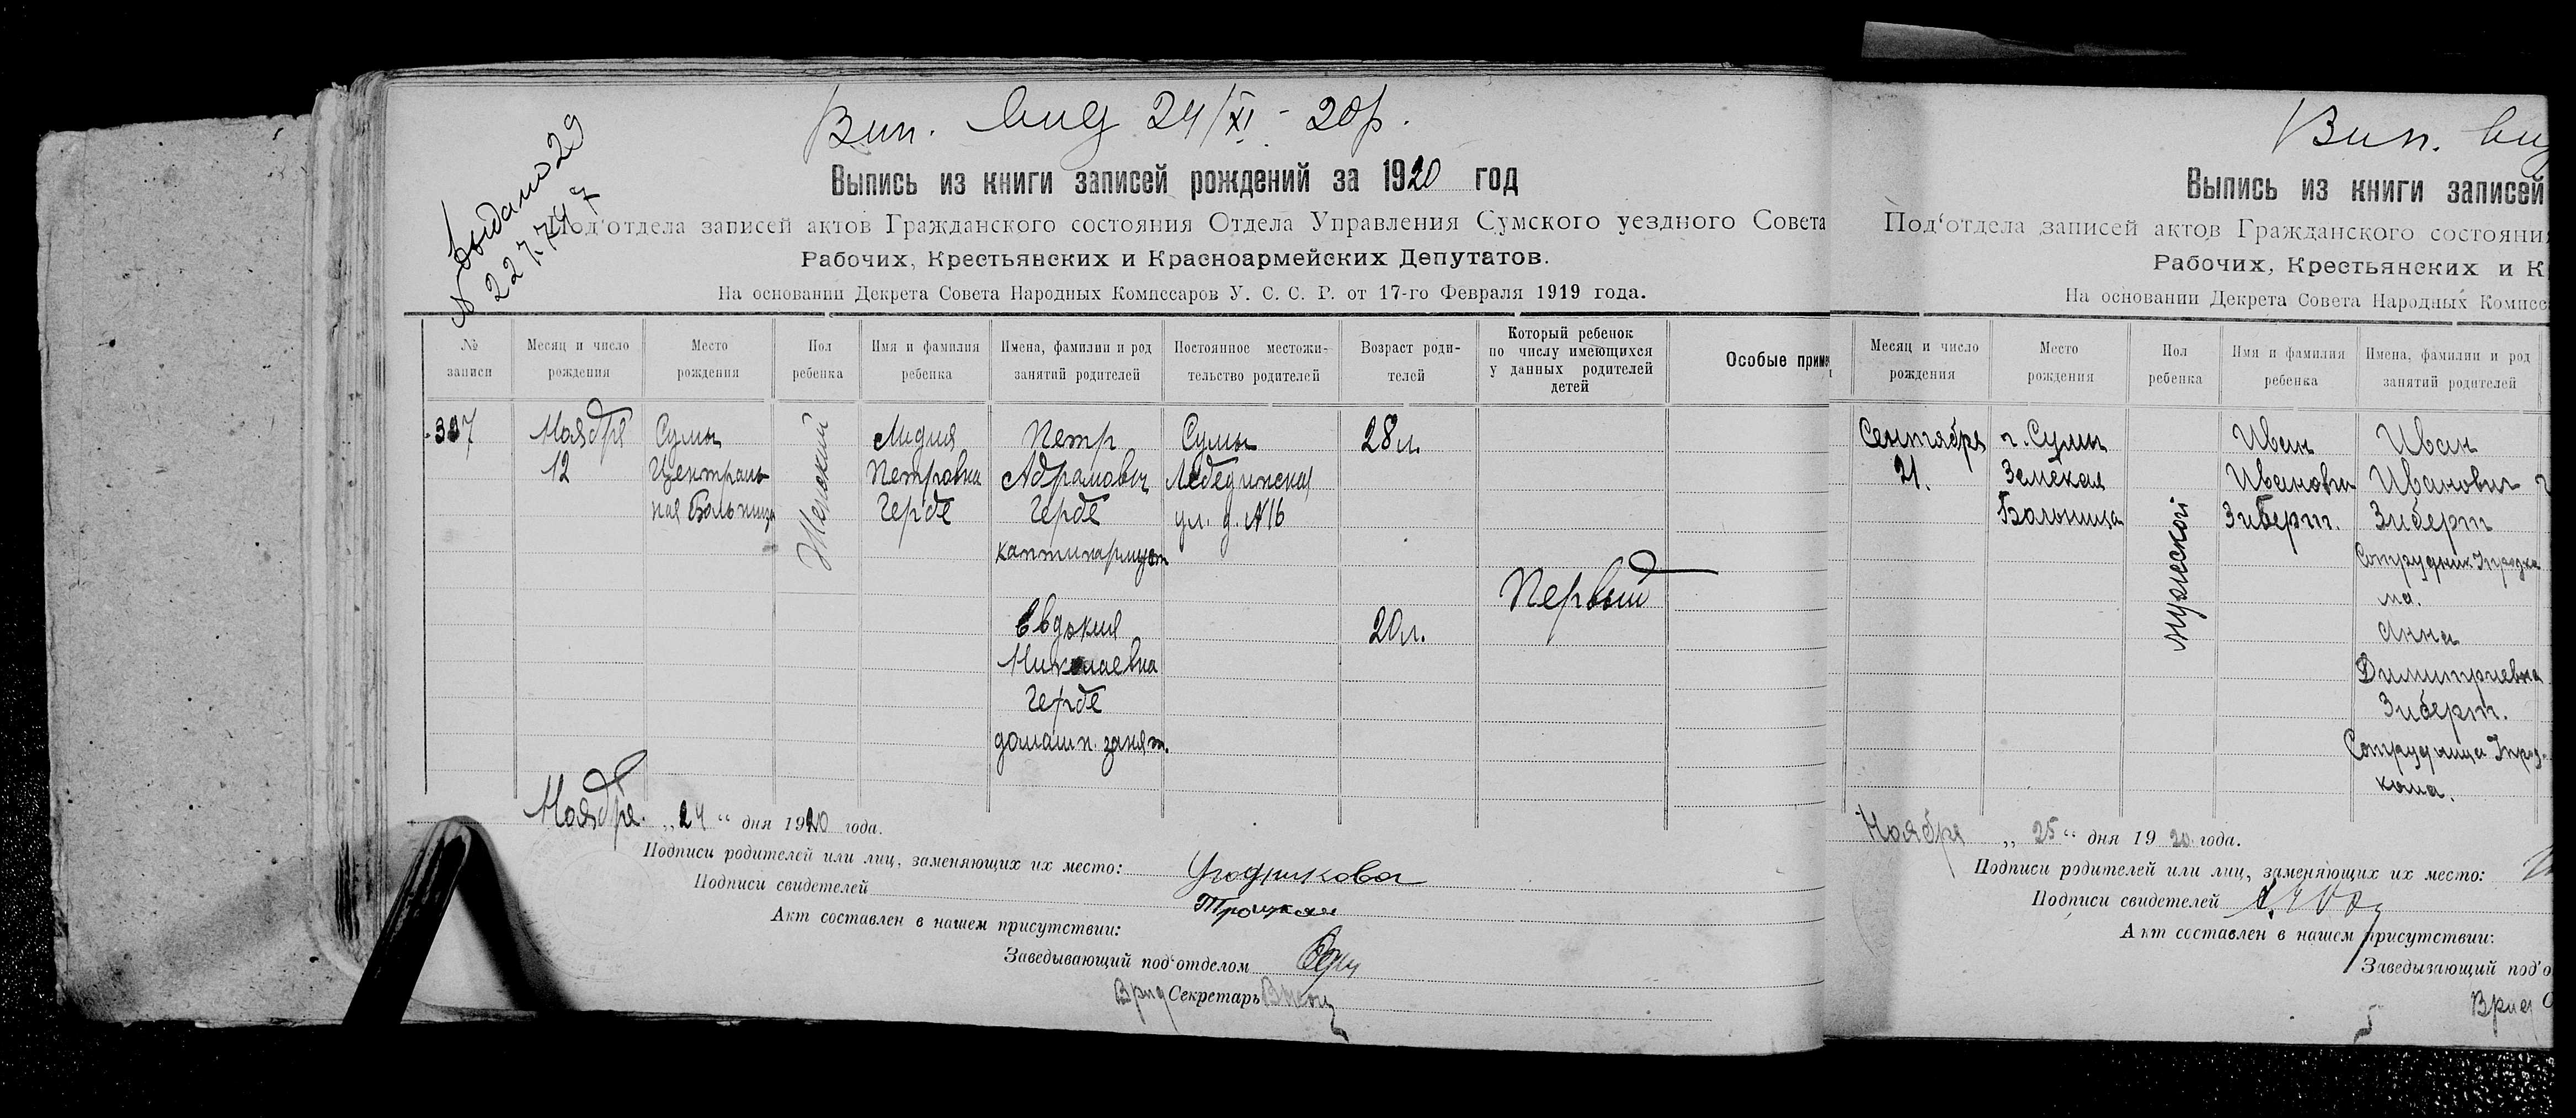 Вип. вид 24/XI - 20р.
Выдано 29
№ 227747
Выпись из книги записей рождений за 1920 год
Под‘отдела записей актов Гражданского состояния Отдела Управления Сумского уездного Совета
Рабочих, Крестьянских и Красноармейских Депутатов.
На основании Декрета Совета Народных Комиссаров У. С. С. Р. от 17-го Февраля 1919 года.
№ записи
Месяц и число рождения
Место рождения
Пол ребенка
Имя и фамилия ребенка
Имена, фамилии и род занятий родителей
Постоянное местожительство родителей
Возраст родителей
Который ребенок по числу имеющихся у данных родителей детей
Особые приме
307
Ноября
12
Сумы
Централь
ная Больница
Женский
Лидия
Петровна
Гербе
Петр
Абрамович
Гербе
Сумы
Лебединская
ул. д. №16
28 л.
Евдокия
Николаевна
Гербе
домашн. занят.
20 л.
Первый
Ноября „24“ дня 1920 года.
Подписи родителей или лиц, заменяющих их место: Угодникова
Подписи свидетелей
Троцкая
Акт составлен в нашем присутствии:
Заведывающий под‘отделом
Врид Секретарь
Вип. вид
Выпись из книги записей
Под‘отдела записей актов Гражданского состояни
Рабочих, Крестьянских и К
На основании Декрета Совета Народных Комисс
Месяц и число рождения
Место рождения
Пол ребенка
Имя и фамилия ребенка
Имена, фамилии и род занятий родителей
Сентября
21.
г. Сумы
Земская
Больница
мужской
Иван
Иванович
Зиберт.
Иван
Иванович
Зиберт
Анна
Димитриевна
Зиберт.
Ноября „25“ дня 1920 года.
Подписи родителей или лиц, заменяющих их место:
Подписи свидетелей
Акт составлен в нашем присутствии:
Заведывающий под‘о
Врид С